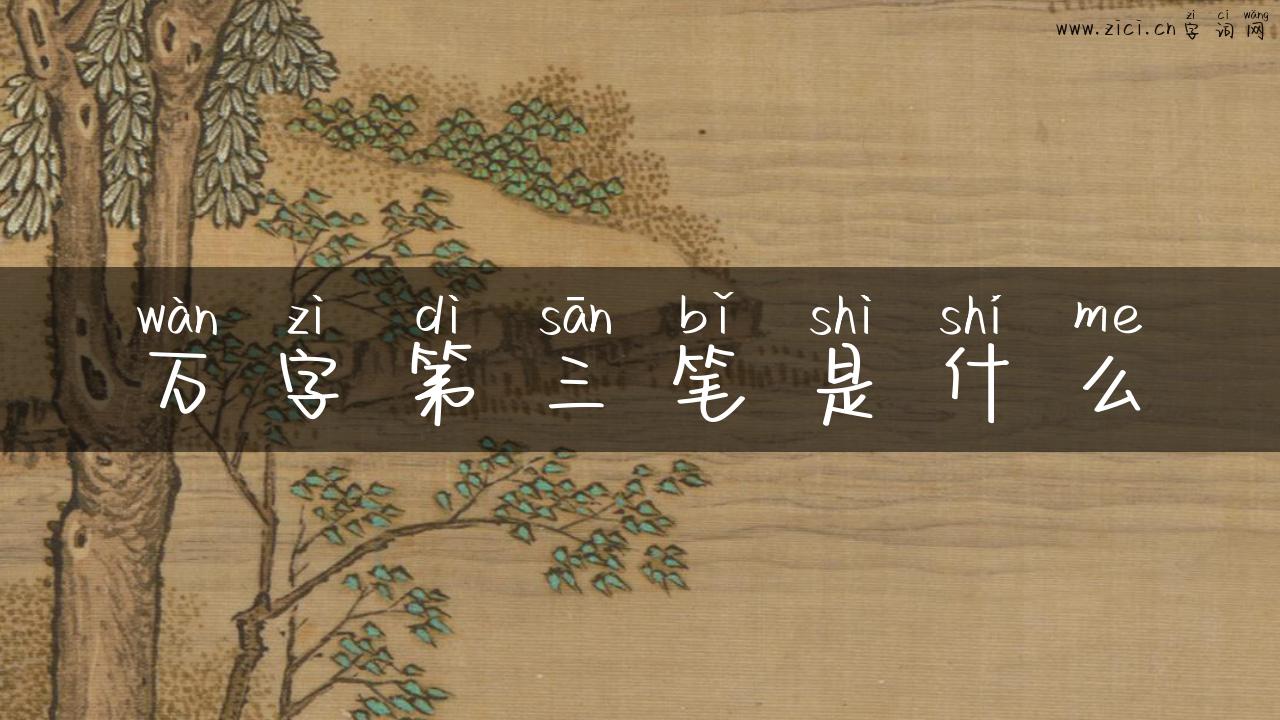 zì cí wǎng
www.zici.cn 字词网
wàn zì dì sān bǐ shì shí me
万字第三笔是什么